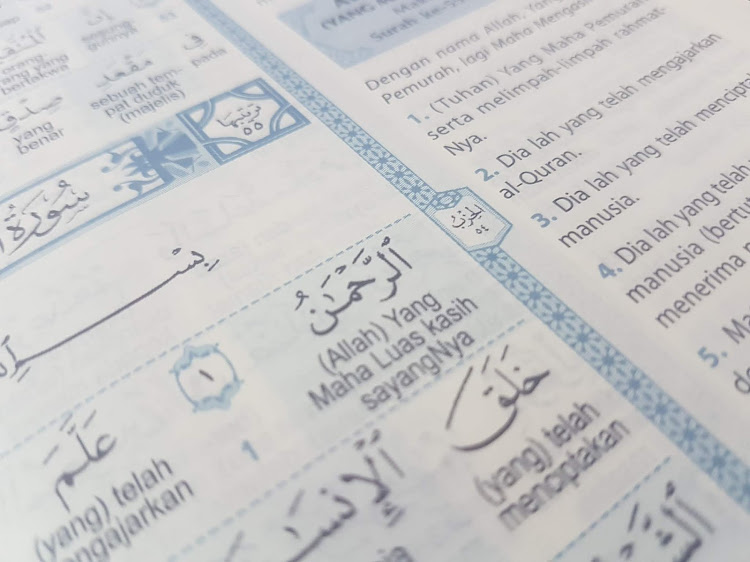 (YANG
Surah ke-55
Dengan nama Allah, Yang
Pemurah, lagi Maha Mengasihi
1. (Tuhan) Yang Maha Pemurah
serta melimpah-limpah rahmat-
Nya.
2. Dia lah yang telah mengajarkan
al-Quran.
3. Dia lah yang telah mencipta
manusia.
4. Dia lah yang telah
manusia (bertu
menerima
5. Ma
الحزب
٥٤
فِي
pada
مَقْعَدِ
sebuah tem-
pat duduk
(majelis)
صِدْقٍ
yang
benar
orang
yang
bertakwa
gunnya
ترتيبها
٥٥
سُورَةُ
بِسْ
ٱلرَّحْمَٰنُ
(Allah) Yang
Maha Luas kasih
sayangNya
١
1
عَلَّمَ
(yang) telah
engajarkan
خَلَقَ
(yang) telah
menciptakan
ٱلْإِنسَـ